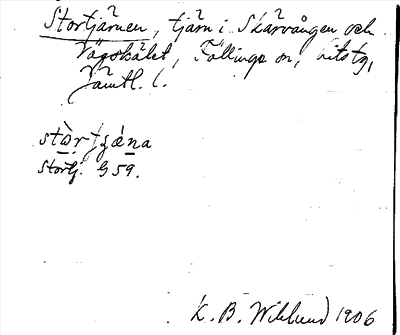 Stortjärnen, tjärn i Skärvången och
Vågskålet, Föllinge sn, Lits tg,
Jämtl. l.
stòrtʃǽna
Stortj. G 59.
K. B. Wiklund 1906